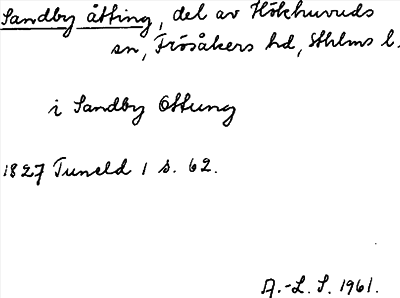 Sandby åtting, del av Hökhuvuds
sn, Frösåkers hd, Sthlms l.
i Sandby Ottung
1827 Tuneld 1 s. 62.
A.-L. S. 1961.